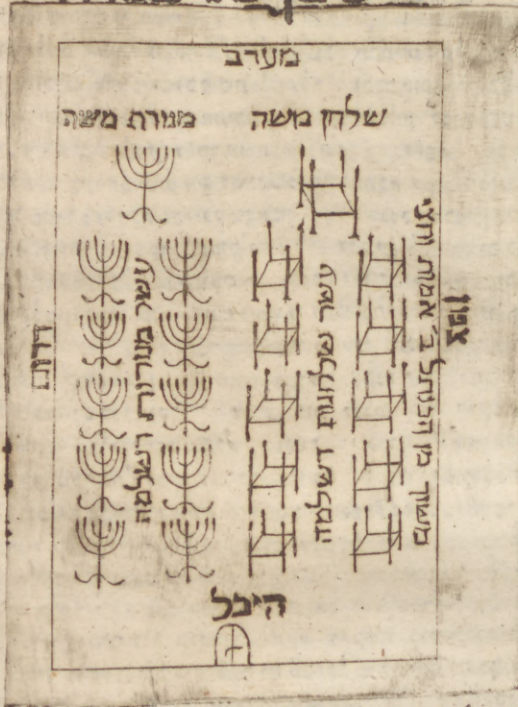 מערב
שלחן משה
מנורת משה
צפון
משוך מן הכותל ב' אמות וחצי
עשר שלחנות דשלמה
עשר מנורות דשלמה
דרום
היכל